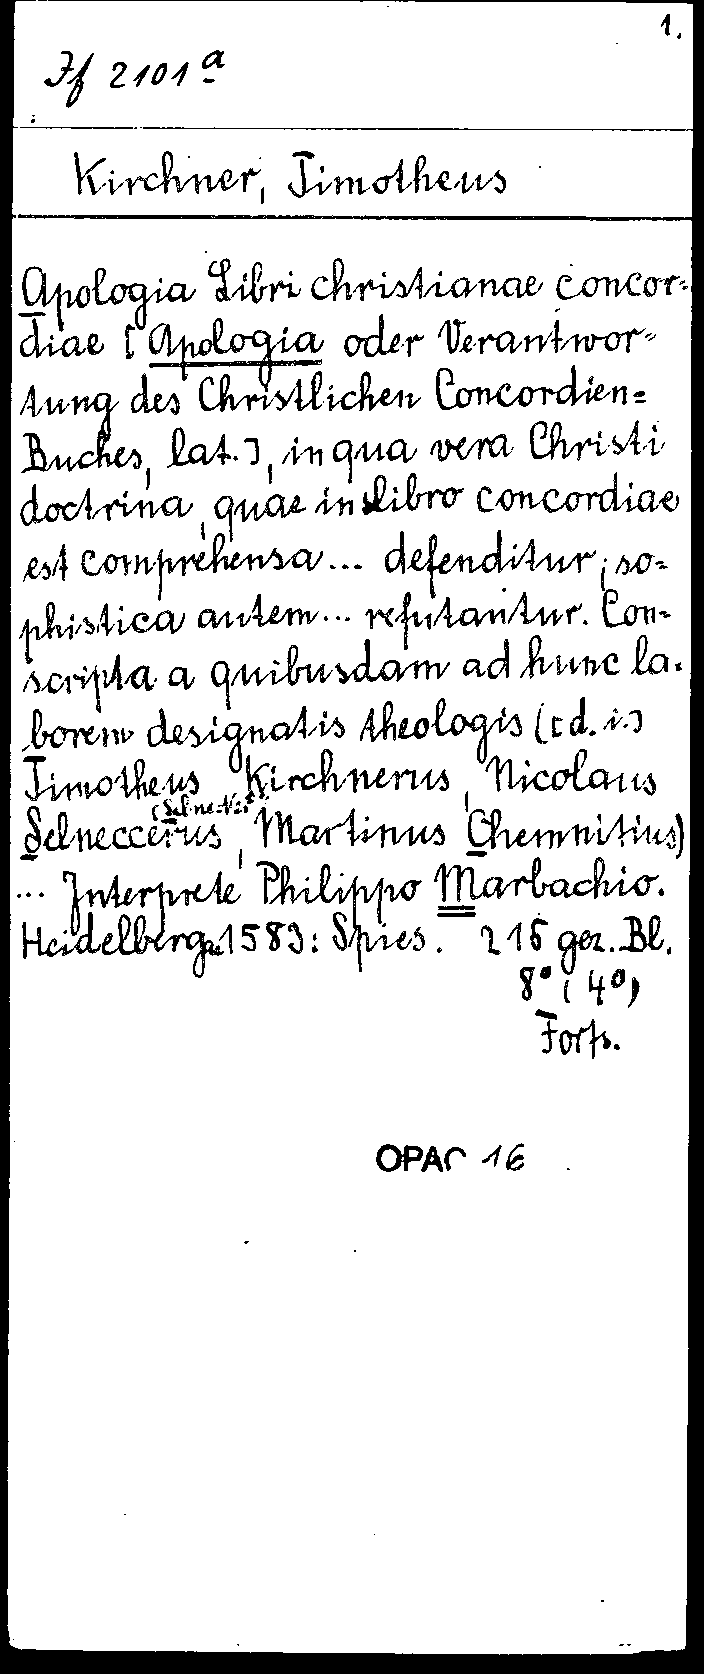 1.
If 2101 a
Kirchner, Timotheus
Apologia Libri christianae concor-
diae [Apologia oder Verantwor-
tung des Christlichen Concordien=
Buches, lat.], in qua vera Christi
doctrina, quae in libro concordiae
est comprehensa... defenditur; so-
phistica autem... refutantur. Con-
scripta a quibusdam ad hunc la-
borem designatis theologis ([d. i.]
Timotheus Kirchnerus, Nicolaus
Selneccerus, Martinus Chemnitius)
... Interprete Philippo Marbachio.
Heidelberg 1583: Spies. 216 gez. Bl.
8° (4°)
Forts.
OPAC 16